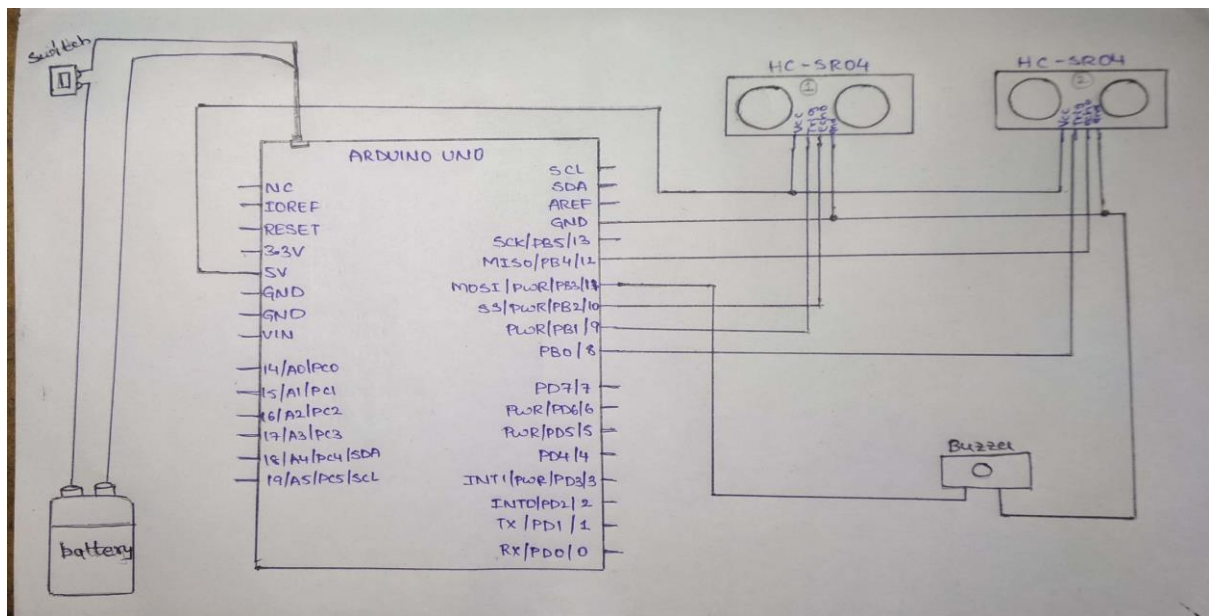 switch
HC-SR04
1
Vcc
Trig
Echo
Gnd
HC-SR04
2
Vcc
Trig
Echo
Gnd
ARDUINO UNO
NC
IOREF
RESET
3.3V
5V
GND
GND
VIN
14/A0/PC0
15/A1/PC1
16/A2/PC2
17/A3/PC3
18/A4/PC4/SDA
19/A5/PC5/SCL
SCL
SDA
AREF
GND
SCK/PB5/13
MISO/PB4/12
MOSI/PWR/PB3/11
SS/PWR/PB2/10
PWR/PB1/9
PB0/8
PD7/7
PWR/PD6/6
PWR/PD5/5
PD4/4
INT1/PWR/PD3/3
INT0/PD2/2
TX/PD1/1
RX/PD0/0
Buzzer
battery